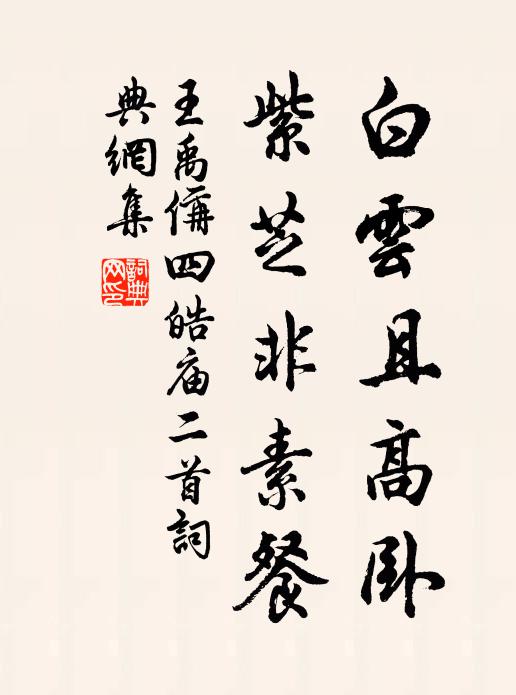 白雲且高臥
紫芝非素餐
王禹偁四皓庙二首詞
典網集
詞典
网印